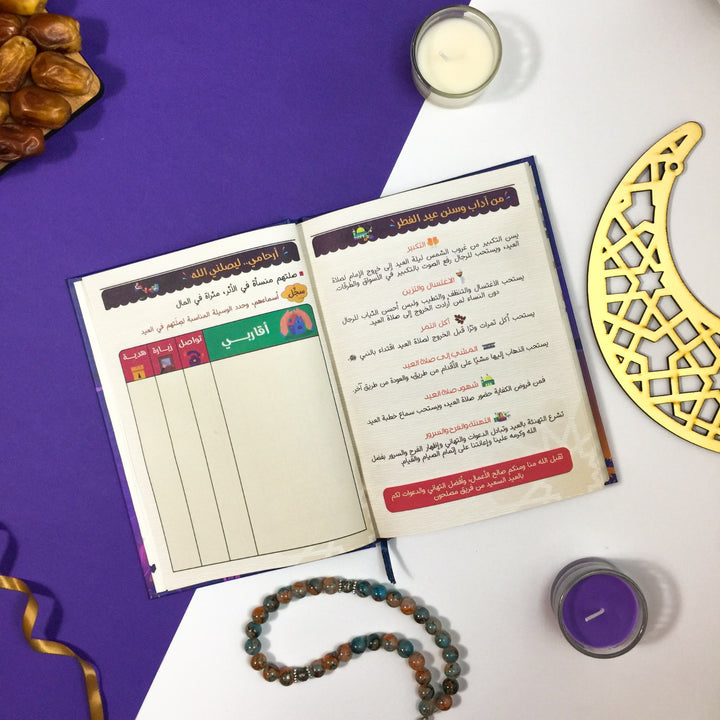 من آداب وسنن عيد الفطر
التكبير
يسن التكبير من غروب الشمس ليلة العيد إلى خروج الإمام لصلاة
العيد، ويستحب للرجال رفع الصوت بالتكبير في الأسواق والطرقات.
الاغتسال والتزين
يستحب الاغتسال والتنظف والتطيب ولبس أحسن الثياب للرجال
دون النساء لمن أرادت الخروج إلى صلاة العيد.
أكل التمر
يستحب أكل تمرات وترًا قبل الخروج لصلاة العيد اقتداء بالنبي ﷺ.
المشي إلى صلاة العيد
يستحب الذهاب إليها مشيًا على الأقدام من طريق، والعودة من طريق آخر.
شهود صلاة العيد
فمن فروض الكفاية حضور صلاة العيد، ويستحب سماع خطبة العيد.
التهنئة والفرح والسرور
تشرع التهنئة بالعيد وتبادل الدعوات والتهاني وإظهار الفرح والسرور بفضل
الله وكرمه علينا وإعانتنا على إتمام الصيام والقيام.
تقبل الله منا ومنكم صالح الأعمال، وأفضل التهاني والدعوات لكم
بالعيد السعيد من فريق مصلحون
أرحامي.. ليصلني الله
صلتهم منسأة في الأثر، مثراة في المال
سجّل أسماءهم، وحدد الوسيلة المناسبة لصِلَتهم في العيد
أقاربي تواصل زيارة هدية